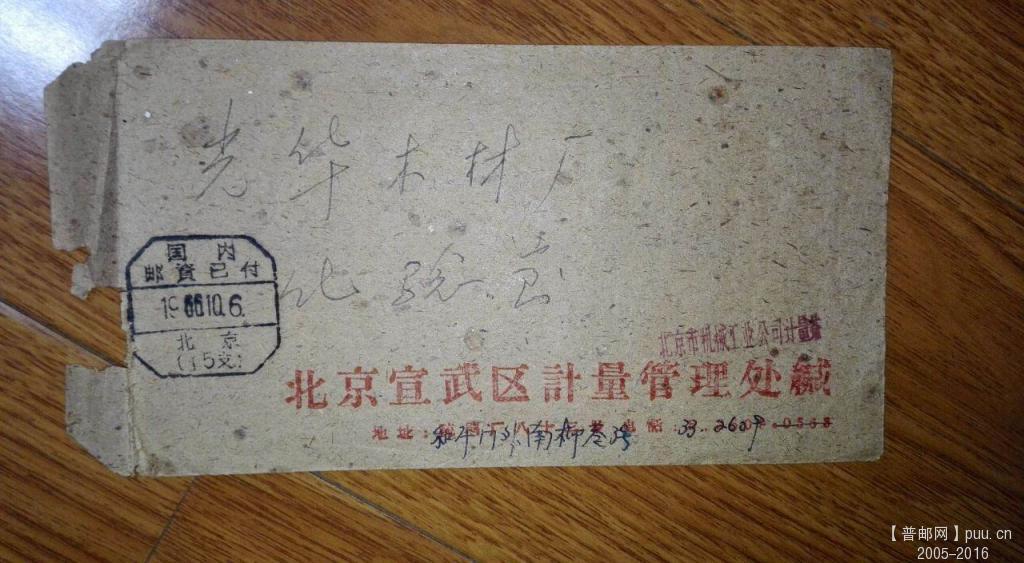 光华木材厂
化验室
国内
邮資已付
1966.10.6.
北京
(15支)
北京市机械工业公司计量
北京宣武区計量管理处緘
地址:
和平门外南柳巷35 电話 33.2629 0538
【普邮网】puu.cn
2005-2016